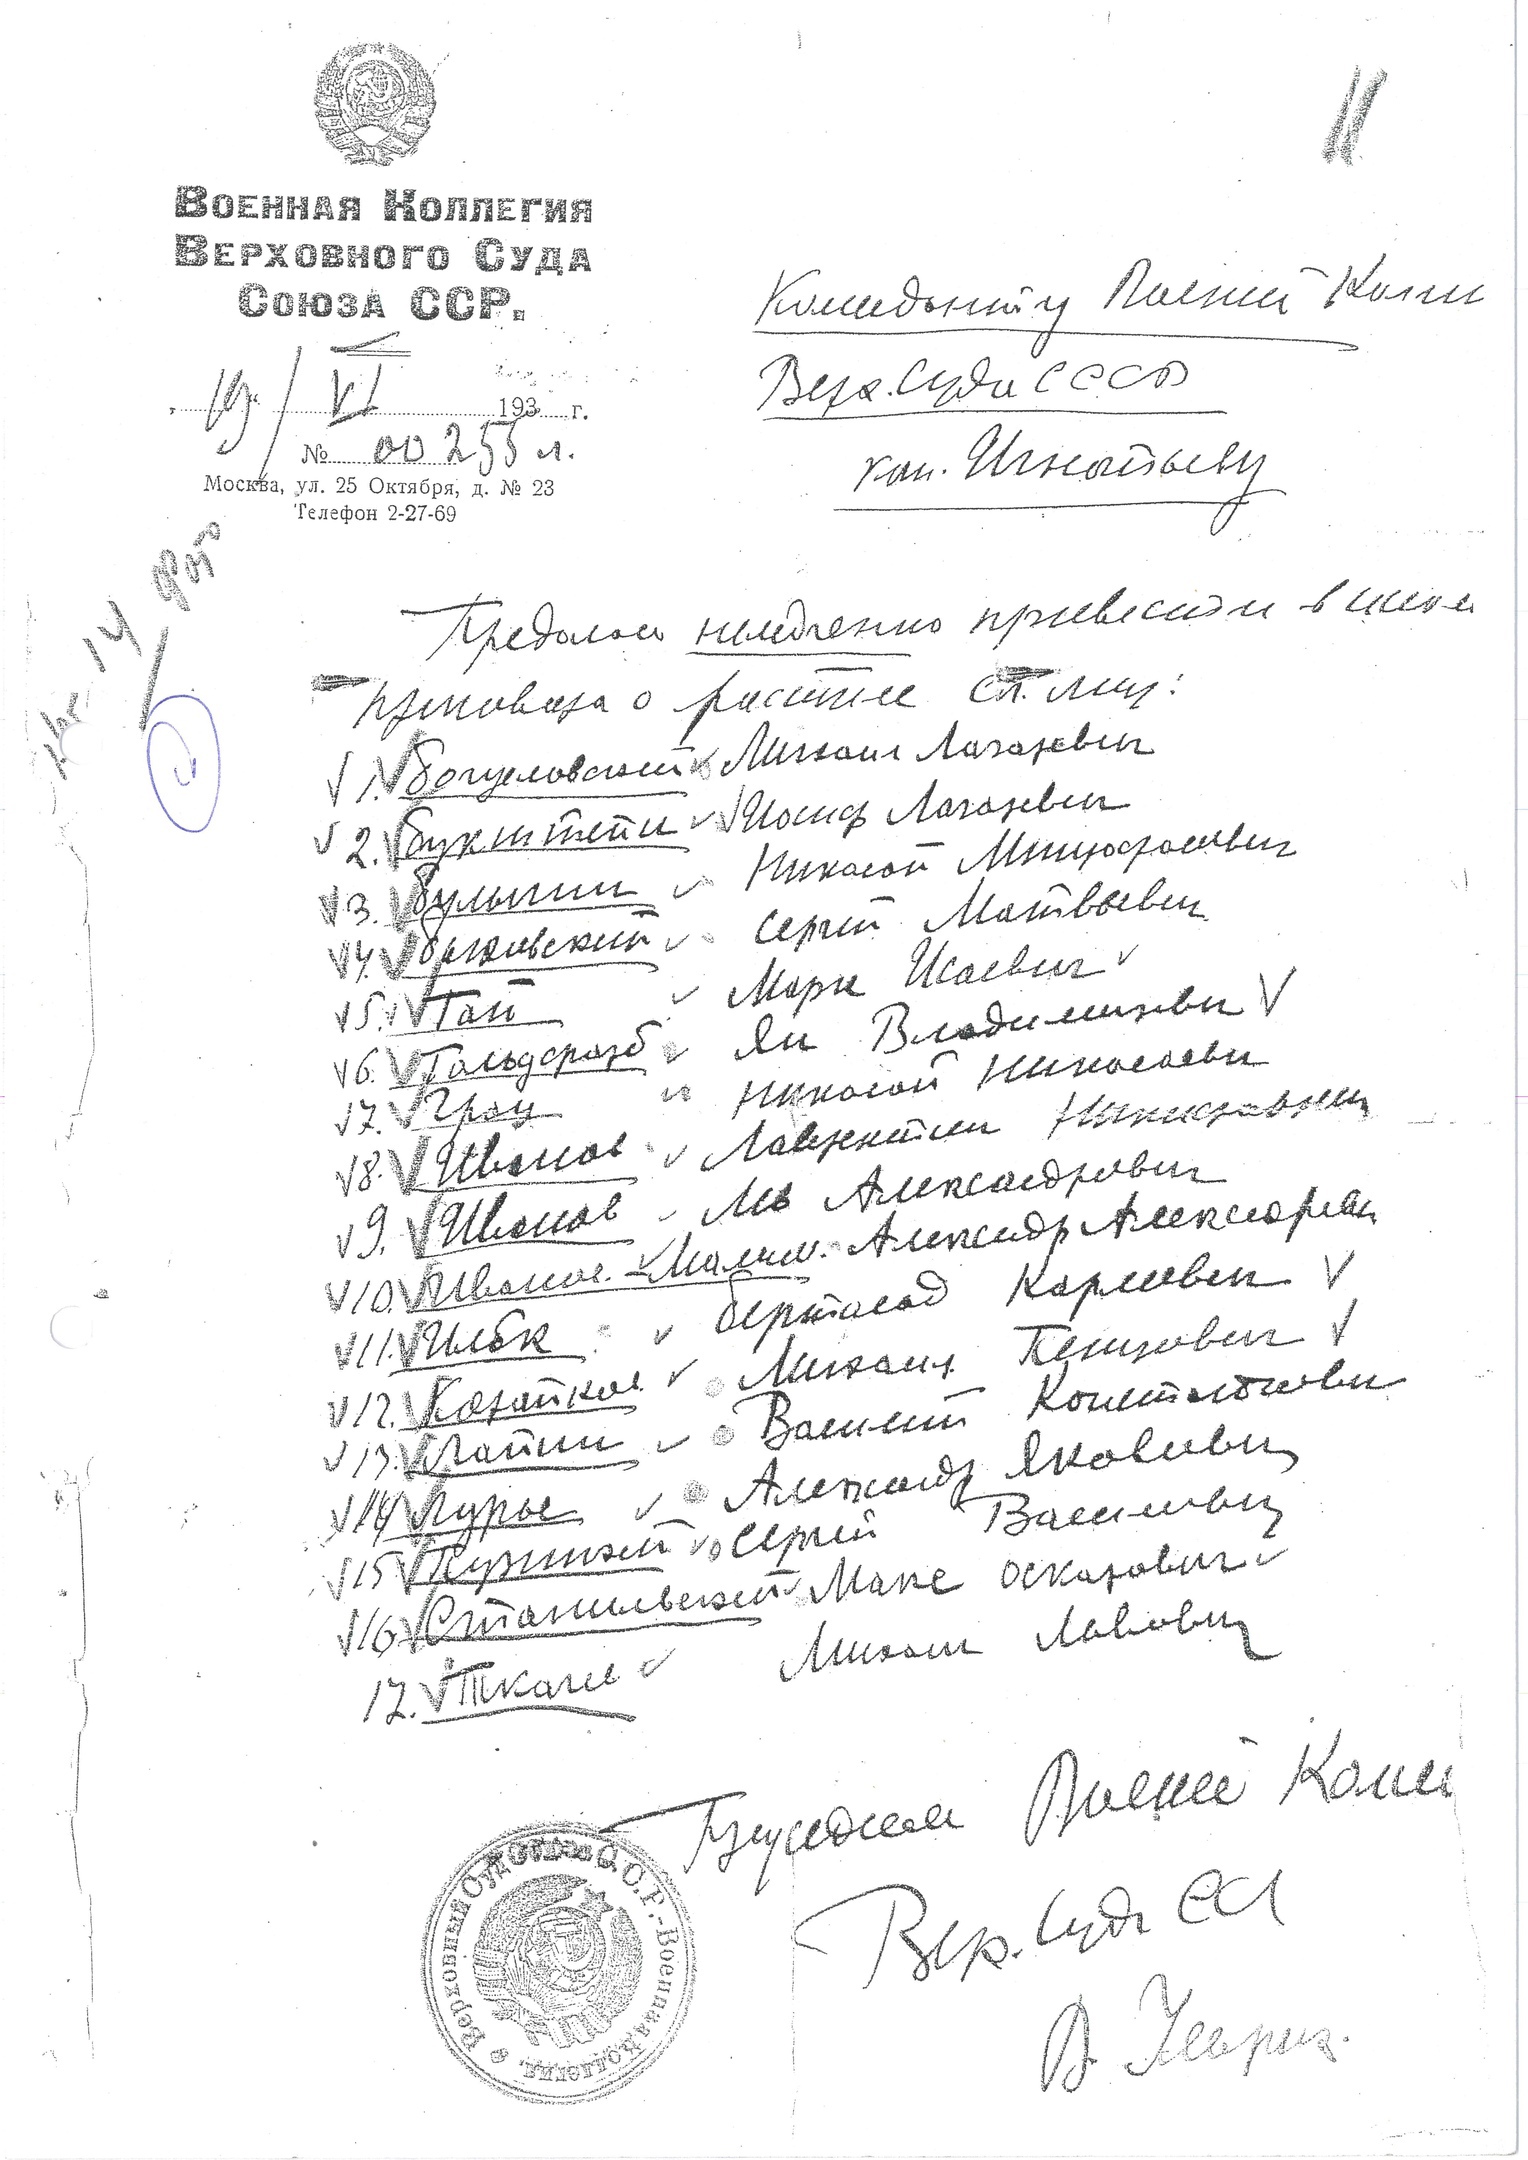 11
ВОЕННАЯ КОЛЛЕГИЯ
ВЕРХОВНОГО СУДА
СОЮЗА ССР.
19/VI 193 г.
№ 00255 л.
Москва, ул. 25 Октября, д. № 23
Телефон 2-27-69
Коменданту Военной Колл
Верх. Суда СССР
кап. Игнатьеву
14 фото
Предлагаю немедленно привести в испол
приговора о расстреле сл. лиц:
1. Богуславский Михаил Лазаревич
2. Букштейн Иосиф Лазаревич
3. Булыгин Николай Митрофанович
4. Быховский Сергей Матвеевич
5. Гай Марк Исаевич
6. Гольдфарб Ян Владимирович
7. Грац Николай Николаевич
8. Иванов Лаврентий Никифорович
9. Иванов Лев Александрович
10. Иванов-Малин. Александр Алексеевич
11. Ильк Бертольд Карлович
12. Козайков Михаил Петрович
13. Лапин Василий Константинович
14. Лурье Александр Яковлевич
15. Пузицкий Сергей Васильевич
16. Станиславский Макс Оскарович
17. Ткачев Михаил Львович
Председатель Военной Колл
Вер. Суда ССС
В. Ульрих.
Верховный Суд Союза С.С.Р. - Военная Коллегия.